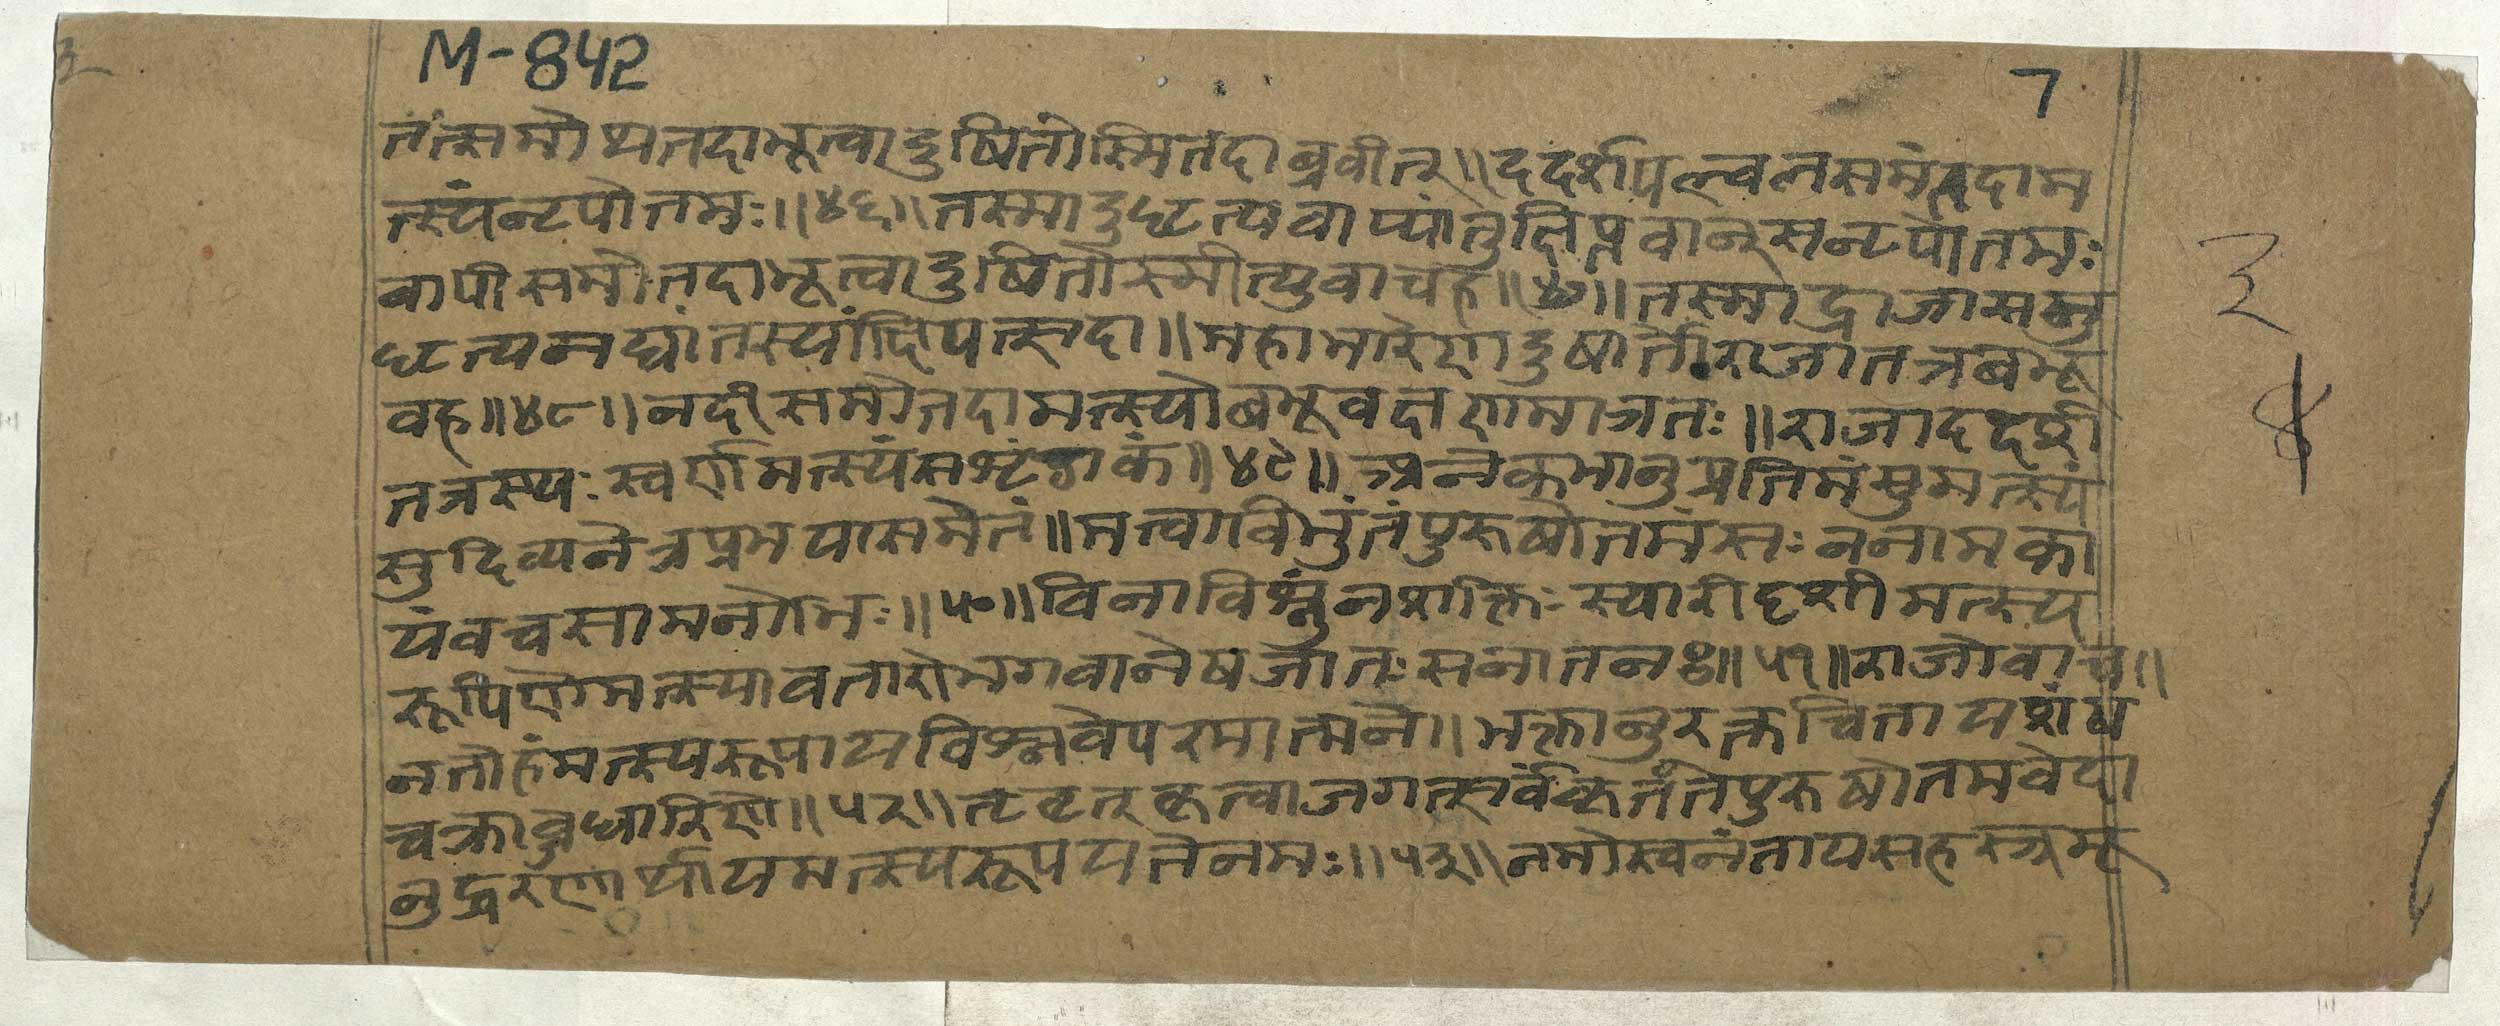 M-842
7
तंत्समो थ तदा भूत्वा दुषितोस्मि तदा ब्रवीत् ॥ ददर्श पल्वल समं तदा म
त्स्यं नृपोतमः ॥ ४६ ॥ तस्मादुधृत्य वाप्यां तु क्षिप्तवान् स नृपोतमः
वापी समो तदा भूत्वा दुषितोस्मीत्युवाच ह ॥ ४७ ॥ तस्माद्राजा समु
धृत्य नद्यां तस्यां क्षिपत्सदा ॥ महाभारेण दुषार्तो राजा तत्र बभू
वह ॥ ४८ ॥ नदी समो तदा मत्स्यो बभूव क्षणमात्रतः ॥ राजा ददर्श
तत्रस्यः स्वर्णमत्स्यं सशृंगकं ॥ ४९ ॥ अनेकभानु प्रतिमं सुमत्स्यं
सुदिव्यनेत्रप्रभयासमेतं ॥ मत्वा विभुं तं पुरुषोतमं सः ननाम का
यं वचसा मनोभिः ॥ ५० ॥ विना विष्णुं न शक्तिः स्यारीदृशी मत्स्य
रूपिणे मत्स्यावतारो भगवानेष जातः सनातनः ॥ ५१ ॥ राजोवाच ॥
नतोहं मत्स्यरूपाय विष्णवे परमात्मने ॥ भक्तानुरक्तचिताय शंख
चक्राब्जधारिणे ॥ ५२ ॥ कृत्वा जगत्सर्व कृतं ते पुरुषोतम वेदा
नुद्धरणार्थाय मत्स्यरूपयते नमः ॥ ५३ ॥ नमोस्त्वनंताय सहस्त्रमू
३
४